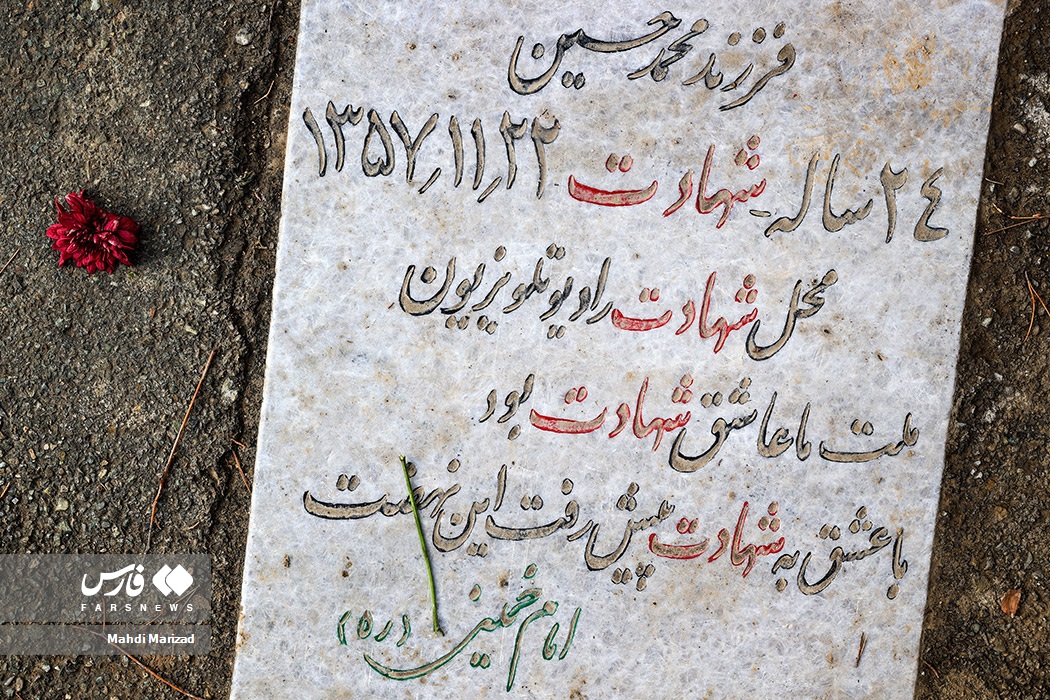 فرزند محمد حسین
۲۴ ساله - شهادت ۱۳۵۷،۱۱،۲۲
محل شهادت رادیو تلویزیون
ملت ما عاشق شهادت بود
با عشق به شهادت پیش رفت این نهضت
امام خمینی (ره)
۱
فارس
FARSNEWS
Mahdi Marizad